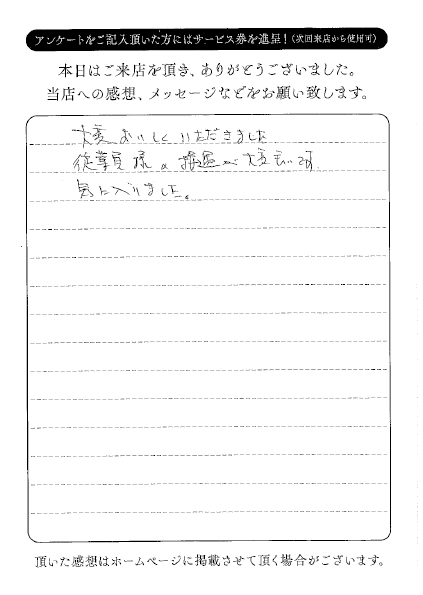 アンケートをご記入頂いた方にはサービス券を進呈！(次回来店から使用可)
本日はご来店を頂き、ありがとうございました。
当店への感想、メッセージなどをお願い致します。
大変おいしくいただきました
従業員様の接遇が大変良いです
気に入りました。
頂いた感想はホームページに掲載させて頂く場合がございます。